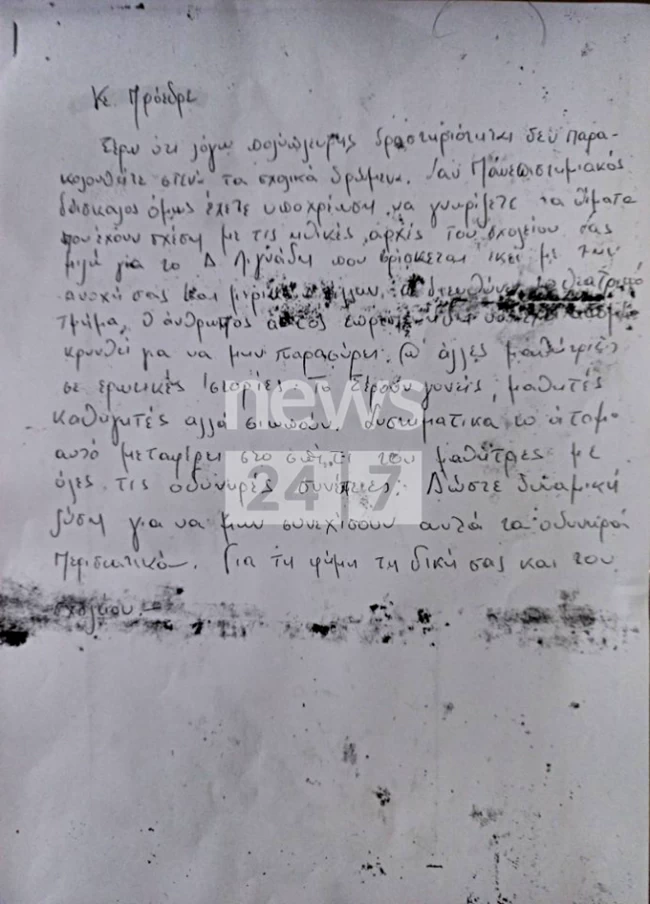 Κε Πρόεδρε
Ξέρω ότι λόγω πολύπλευρης δραστηριότητας δεν παρα-
κολουθείτε στενά τα σχολικά δρώμενα. Σαν Πανεπιστημιακός
δάσκαλος όμως έχετε υποχρέωση να γνωρίζετε τα θέματα
που έχουν σχέση με τις ηθικές αρχές του σχολείου σας
μιλώ για το Δ. Λιγνάδη που βρίσκεται εκεί με την
ανοχή σας και μερικών άλλων, να διευθύνει το θεατρικό
τμήμα, ο άνθρωπος αυτός
κρυνθεί για να μην παρασύρει άλλες μαθήτριες
σε ερωτικές ιστορίες. Το ξέρουν γονείς, μαθητές
καθηγητές αλλά σιωπούν. Συστηματικά το άτομο
αυτό μεταφέρει στο σπίτι του μαθήτρες με
όλες τις οδυνηρές συνέπειες. Δώστε δυναμική
λύση για να μην συνεχίσουν αυτά τα οδυνηρά
περιστατικά. Για τη φήμη τη δική σας και του
σχολείου
news
24 7